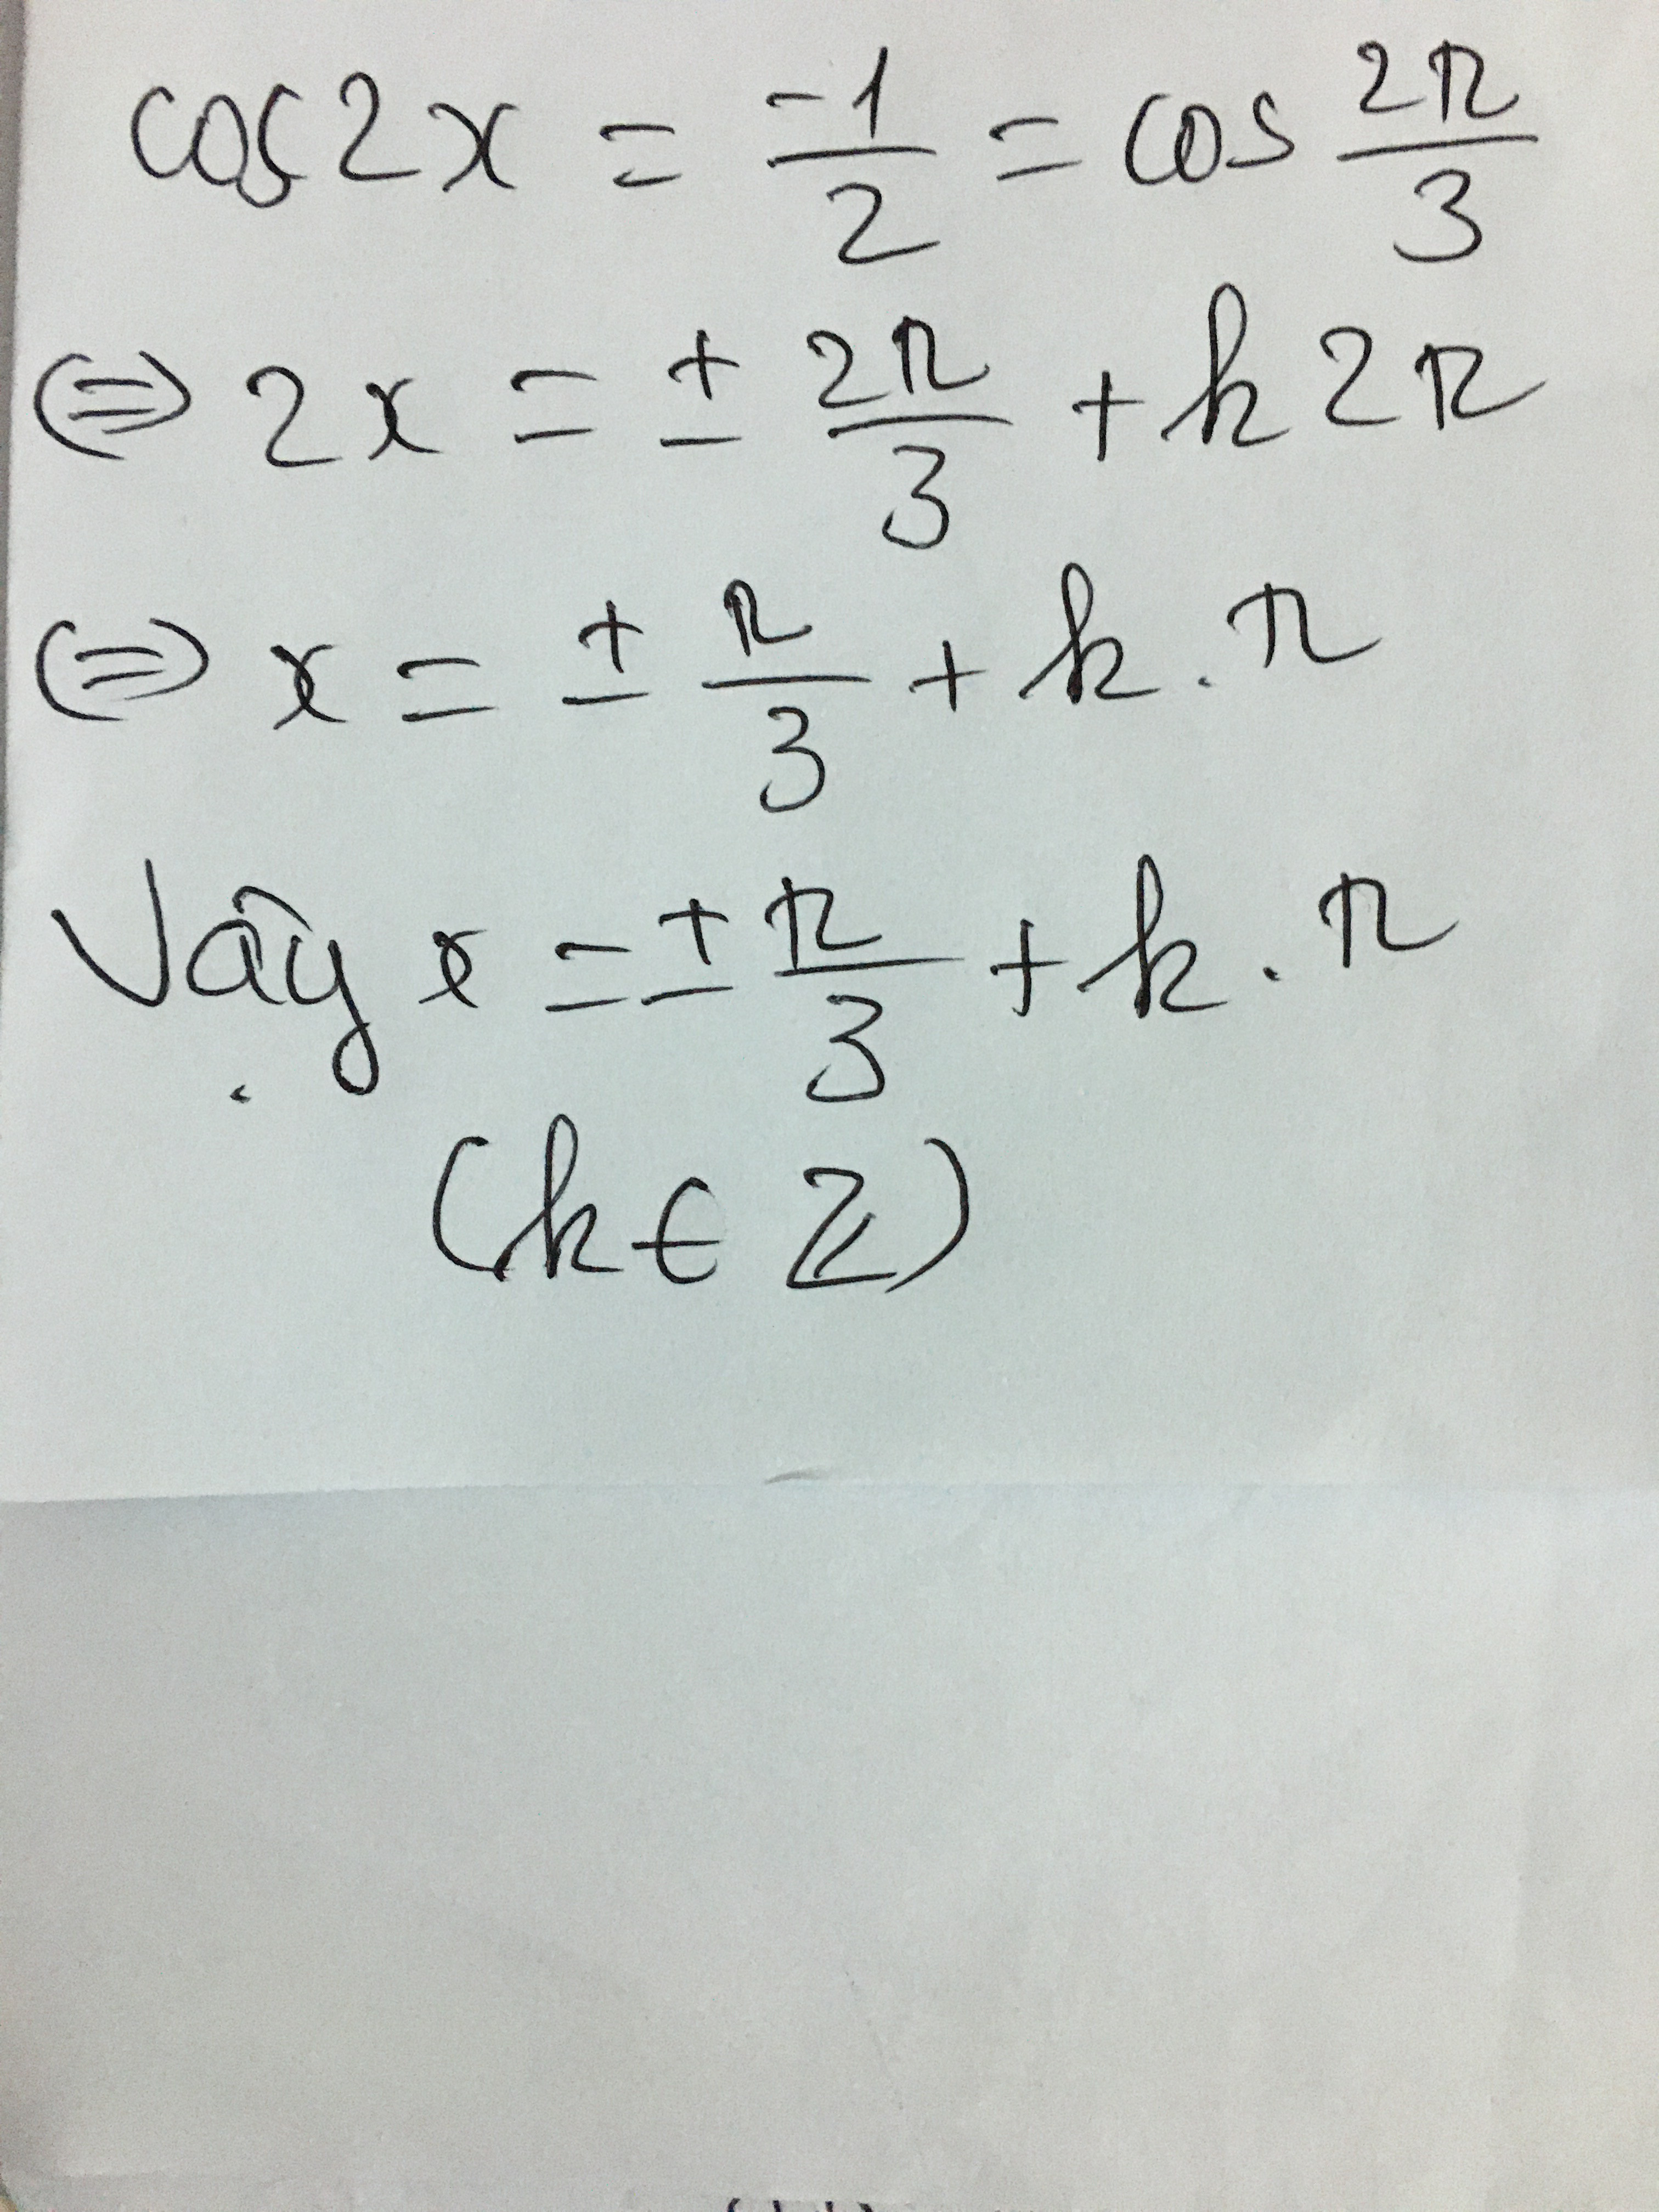 cos2x = -1/2 = cos 2π/3
(=) 2x = ± 2π/3 + k2π
(=) x = ± π/3 + k.π
Vậy x = ± π/3 + k.π
(k ∈ ℤ)